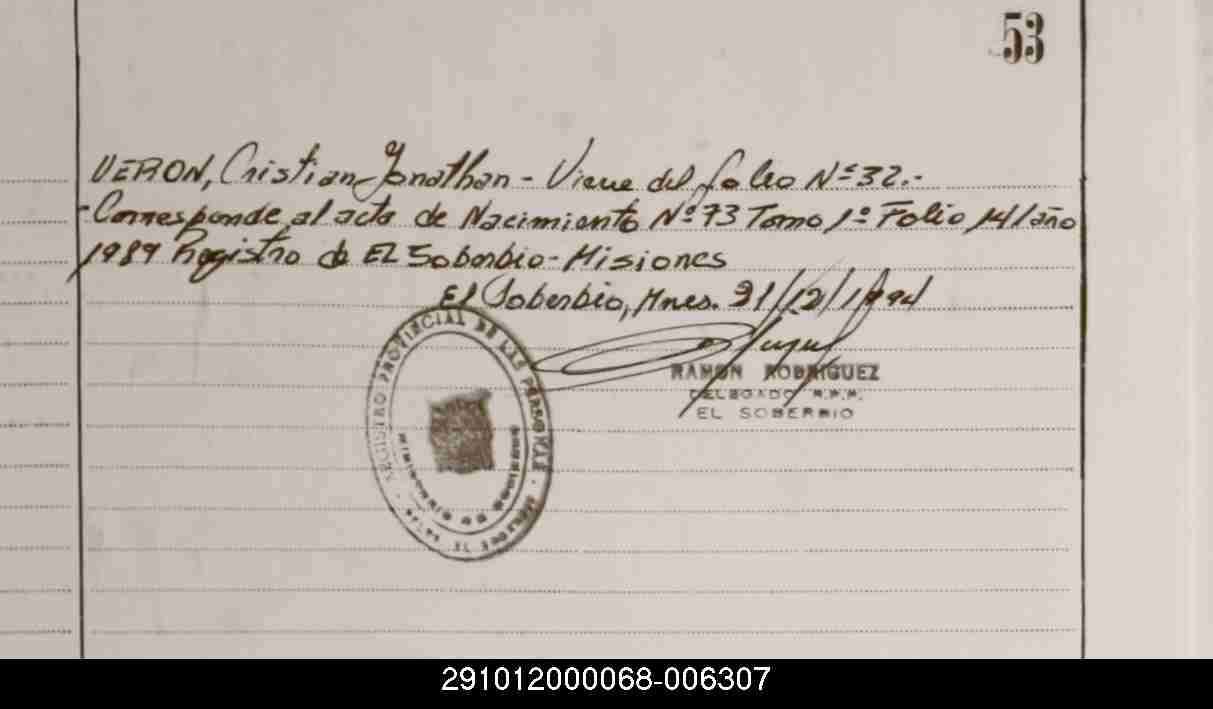 53
VERON, Cristian Jonathan - Viene del folio Nº 32.-
Corresponde al acta de Nacimiento Nº 73 Tomo 1º Folio 14/año
1989 Registro de El Soberbio - Misiones
El Soberbio, Mnes. 21/12/1994
RAMON RODRIGUEZ
DELEGADO R.P.P.
EL SOBERBIO
REGISTRO PROVINCIAL DE LAS PERSONAS
291012000068-006307